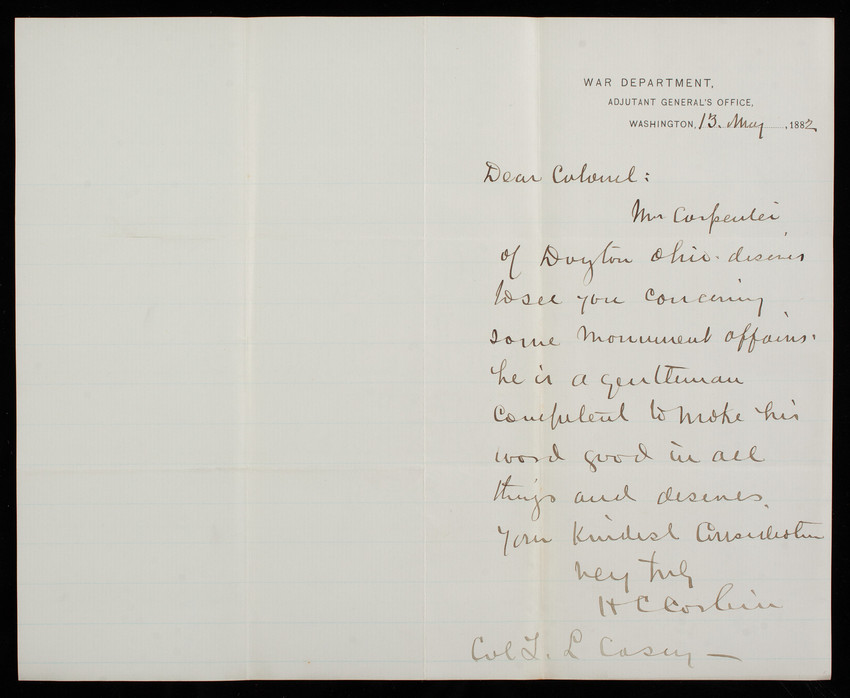 WAR DEPARTMENT,
ADJUTANT GENERAL'S OFFICE,
WASHINGTON, 13. May, 1882
Dear Colonel:
Mr Carpenter
of Dayton Ohio. desires
to see you concerning
some Monument affairs.
he is a gentleman
competent to make his
word good in all
things and deserves
your kindest Consideration
Very truly
H C Corbin
Col T. L Casey —